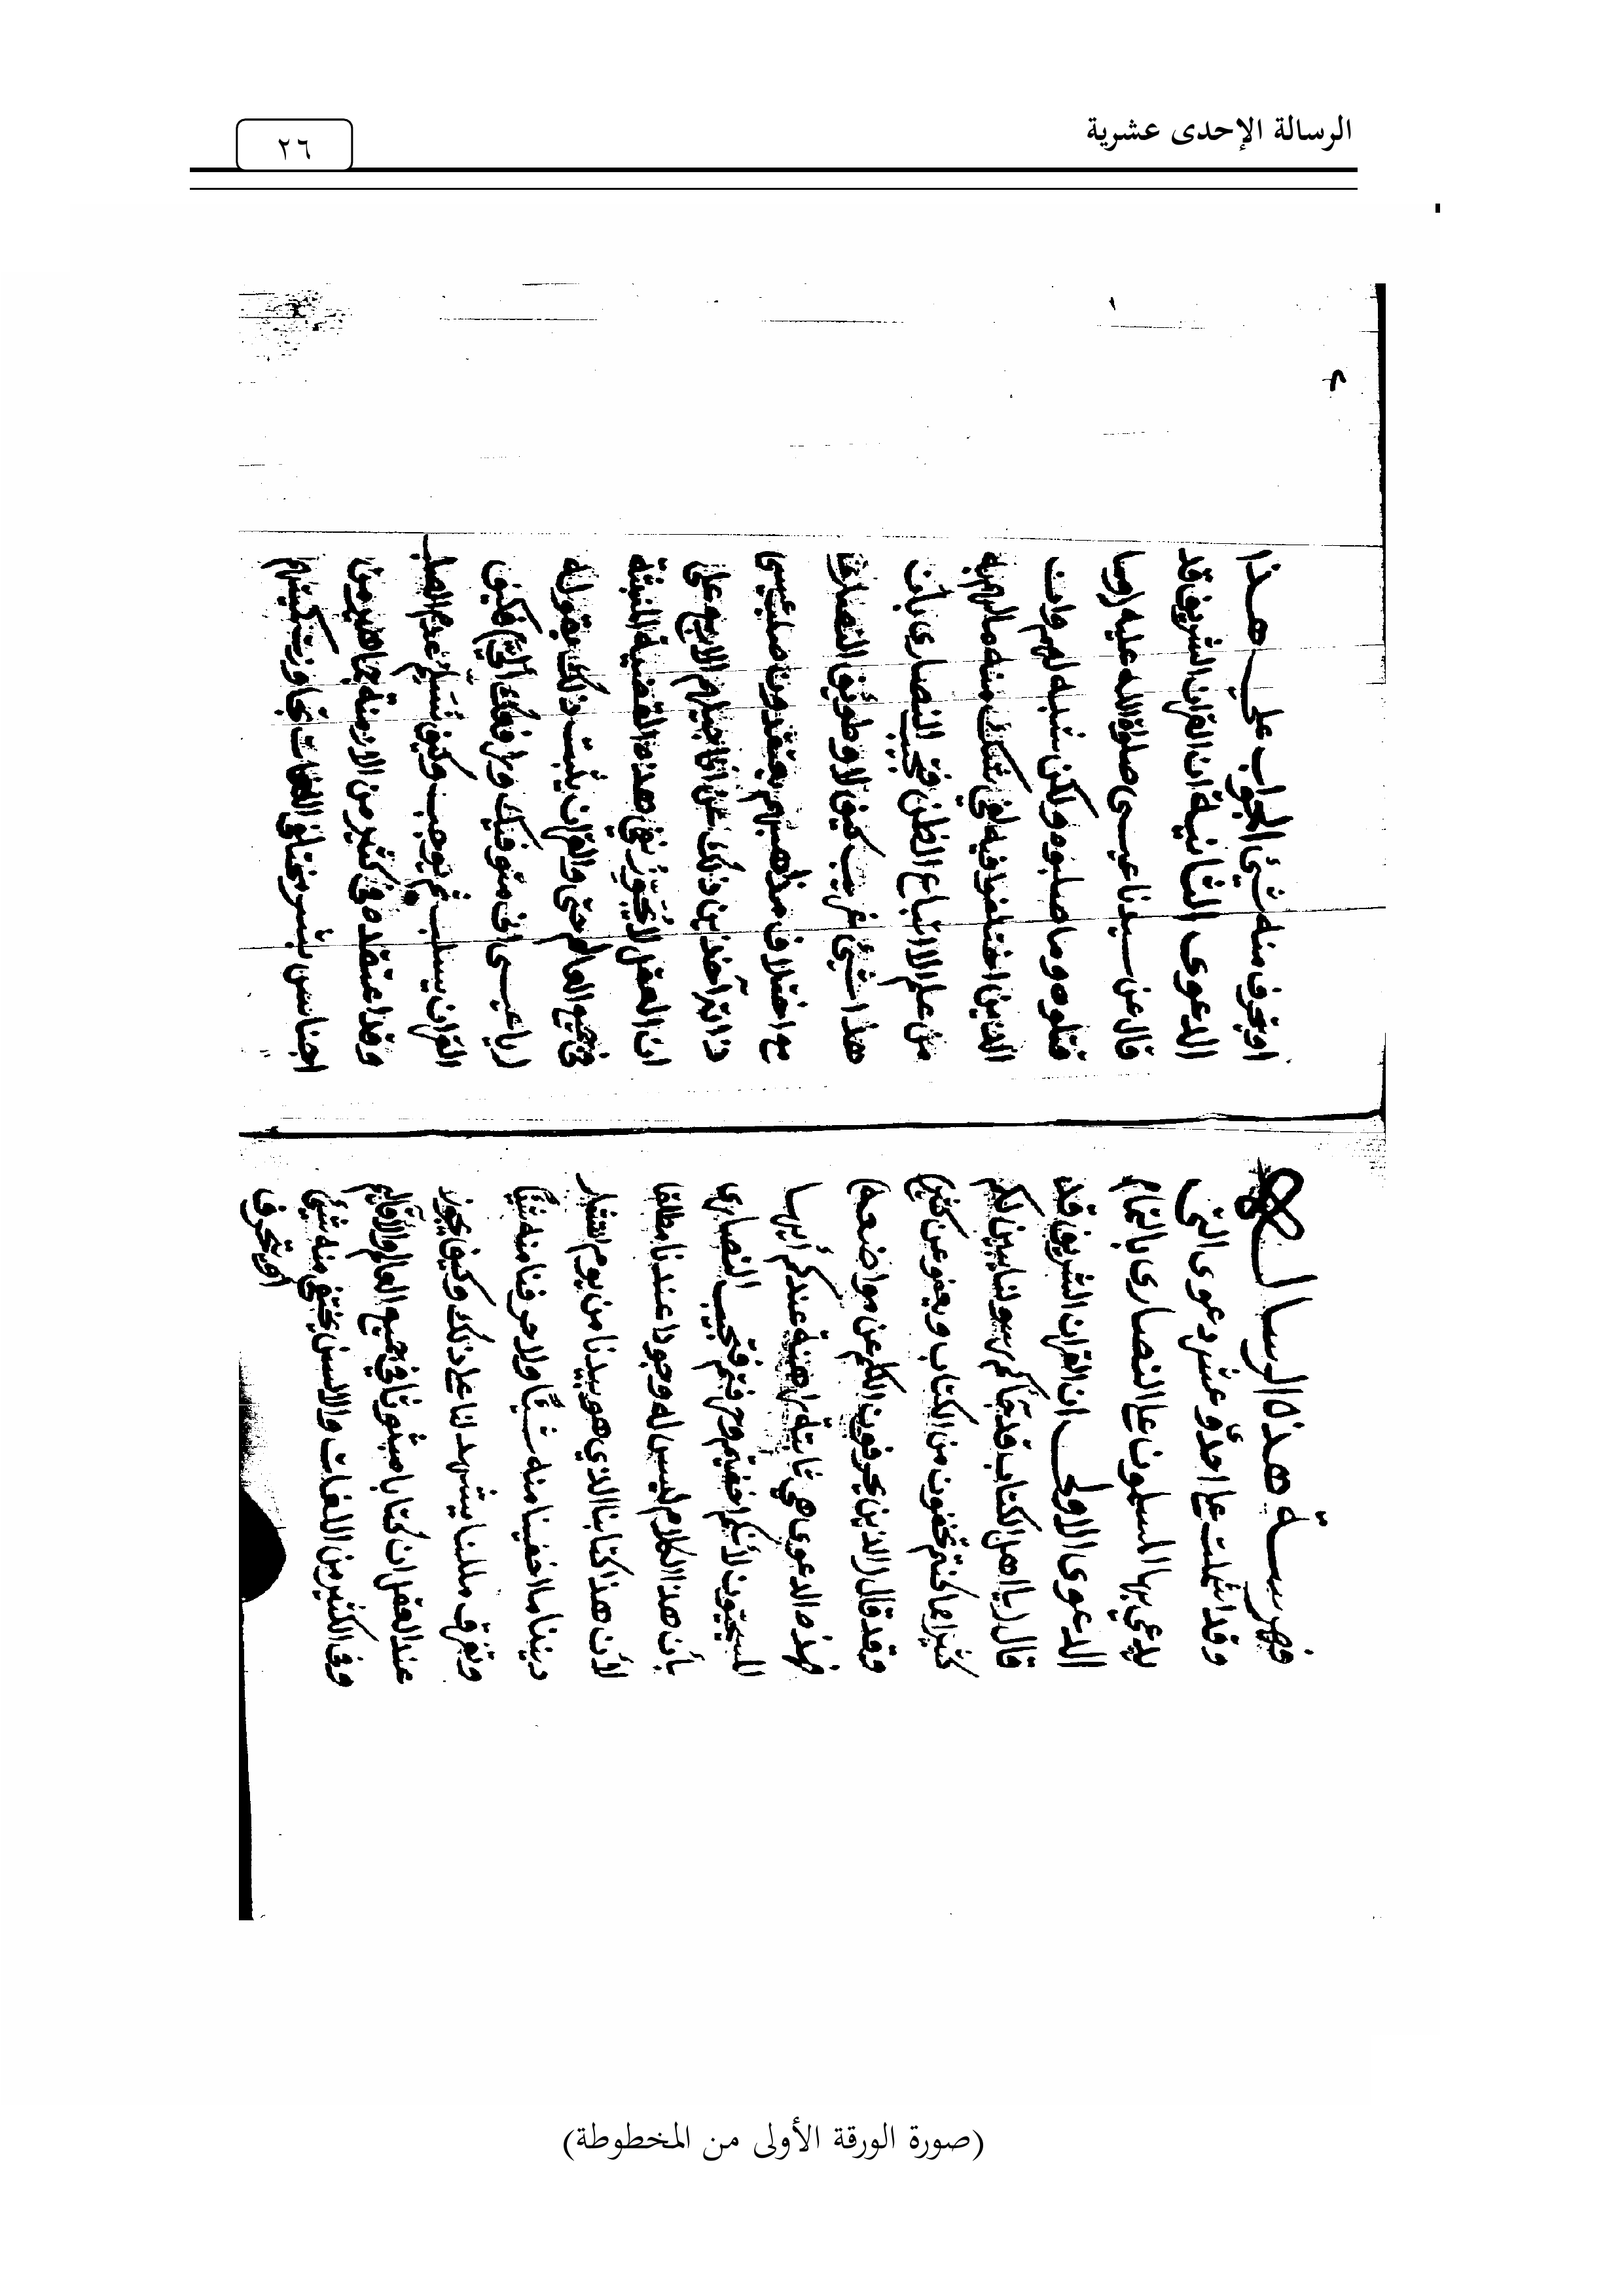 الرسالة الإحدى عشرية
٢٦
فهرسة هذه الرسالة
وقد شملت على احدَ وعشر دعوى التي
يدعي بها المسلمون على النصارى بالتمام
الدعوى الاولى ان القران الشريف قد
قال يا اهل الكتاب قد جآكم رسولنا يبين لكم
كثيرا مما كنتم تخفون من الكتاب ويعفو عن كثير
وقد قال الذين يحرفون الكلم عن مواضعه
فهذه الدعوى هي ثابتة راهنة عندكم أيها
المسيحيون لأنكم اخفيتم وحرفتم فتجيب النصارى
بأن هذا الكلام ليس له وجودا عندنا مطلقا
لأن هذا كتابنا الذي هو بيدنا من يوم انتشار
ديننا ما اخفينا منه شيئًا ولا حرفنا منه شيئًا
وتفرق مللنا يشهد لنا على ذلك وكيف يجوز
عند العقل ان كتابا مبثوثا في جميع العالم والآقاليم
وفي الكثير من اللغات والالسن يختفي منه شيئ
او يتحرف
او يتحرف منه شيئ الجواب على هذا
الدعوى الثانية ان القران الشريف قد
قال عن سيدنا عيسى صلوة الله عليه وما
قتلوه وما صلبوه ولكن شبه لهم وان
الذين اختلفوا فيه لفي شك منه ما لهم به
من علم الا اتباع الظن فتجيب النصارى بأن
هذا شيئ غريب كيف لا وطوائف النصارى
مع اختلاف مذاهبهم يعتقدون صلب عيسى
ذاته آخذين ذلك عن اناجيلهم الاربع على
ان العقل لا يجوّز نفي هذه القضية المنبثة
في جميع العالم حتى والقران يثبت ذلك بقوله
يا عيسى اني متوفيك ورافعك اليّ فكيف
القران يسلب ثم يوجب وكيف نسَلّم عدم الصلب
وقد اعتقده في كثير من الازمنة جماهير من
اجناس بشر مختلفي اللغات تجاوزت كميتهم
(صورة الورقة الأولى من المخطوطة)